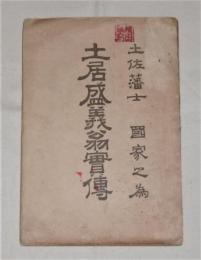 土佐藩士 國家之為
土居盛義翁實傳